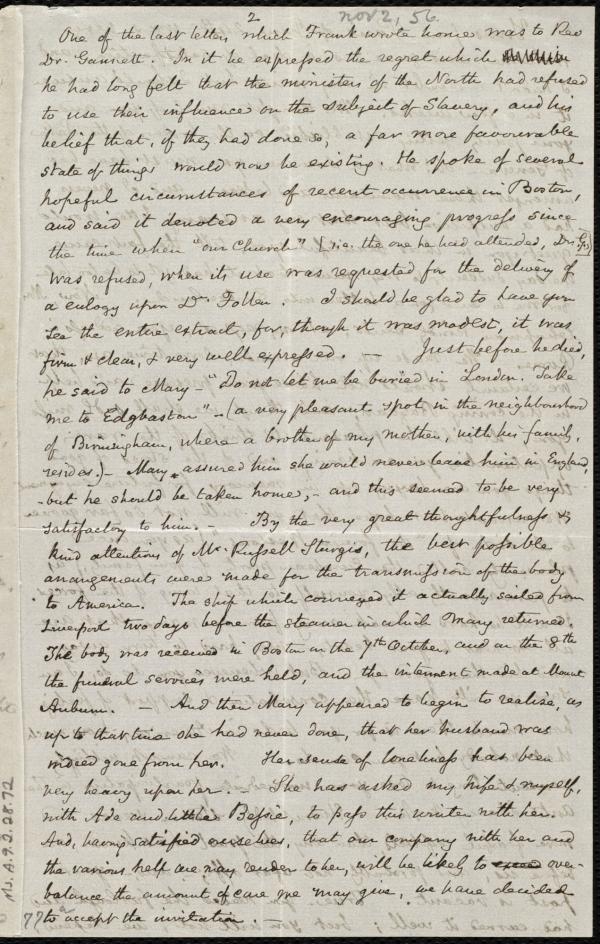 2
nov 2, 56.
One of the last letters which Frank wrote home was to Rev
Dr. Gannett. In it he expressed the regret which
he had long felt that the ministers of the North had refused
to use their influence on the subject of Slavery, and his
belief that, if they had done so, a far more favourable
state of things would now be existing. He spoke of several
hopeful circumstances of recent occurrence in Boston,
and said it denoted a very encouraging progress since
the time when "our Church" [i.e. the one he had attended, Dr. G's]
was refused, when its use was requested for the delivery of
a eulogy upon Dr. Follen. I should be glad to have you
see the entire extract, for, though it was modest, it was
firm & clear, & very well expressed. — Just before he died,
he said to Mary – "Do not let me be buried in London. Take
me to Edgbaston" – (a very pleasant spot in the neighbourhood
of Birmingham, where a brother of my mother, with his family,
resides.) – Mary assured him she would never leave him in England,
- but he should be taken home, – and this seemed to be very
satisfactory to him. – By the very great thoughtfulness &
kind attentions of Mr. Russell Sturgis, the best possible
arrangements were made for the transmission of the body
to America. The ship which conveyed it actually sailed from
Liverpool two days before the steamer in which Mary returned.
The body was received in Boston on the 7th October, and on the 8th
the funeral services were held, and the interment made at Mount
Auburn. — And then Mary appeared to begin to realize, as
up to that time she had never done, that her husband was
indeed gone from her. Her sense of loneliness has been
very heavy upon her. – She has asked my wife & myself,
with Ada and little Bessie, to pass this winter with her.
And, having satisfied ourselves, that our company with her and
the various help we may render to her, will be likely to over-
balance the amount of care we may give, we have decided
to accept the invitation. —
Ms. A.9.2.28.72
77